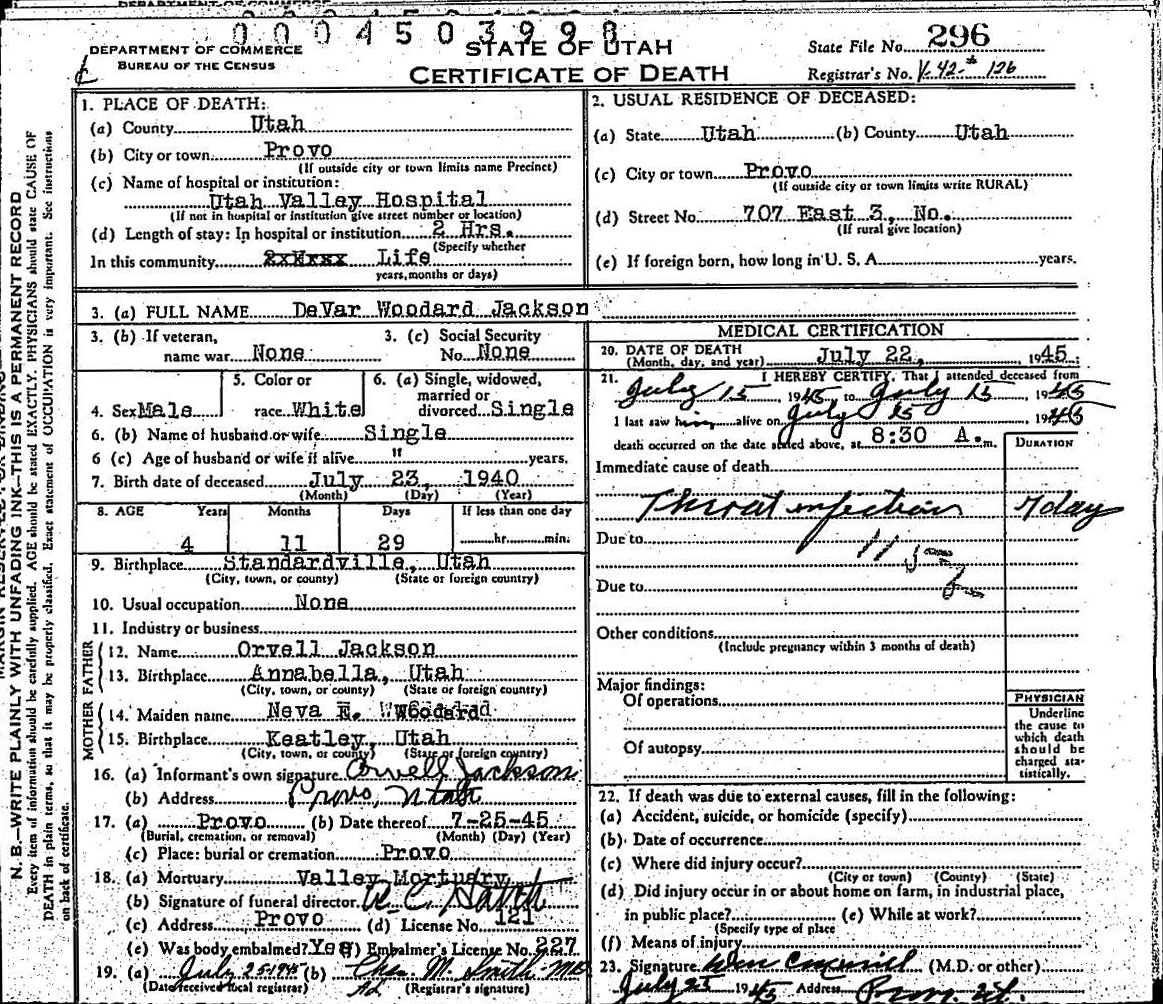 DEPARTMENT OF COMMERCE
000450399 8
DEPARTMENT OF COMMERCE
BUREAU OF THE CENSUS
STATE OF UTAH
CERTIFICATE OF DEATH
State File No. 296
Registrar's No. V-42-* 126
1. PLACE OF DEATH:
(a) County Utah
(b) City or town Provo
(If outside city or town limits name Precinct)
(c) Name of hospital or institution:
Utah Valley Hospital
(If not in hospital or institution give street number or location)
(d) Length of stay: In hospital or institution 2 Hrs.
(Specify whether
In this community Life
years, months or days)
2. USUAL RESIDENCE OF DECEASED:
(a) State Utah (b) County Utah
(c) City or town Provo
(If outside city or town limits write RURAL)
(d) Street No. 707 East 3, No.
(If rural give location)
(e) If foreign born, how long in U. S. A. years.
3. (a) FULL NAME DeVar Woodard Jackson
3. (b) If veteran,
name war None
3. (c) Social Security
No. None
4. Sex Male
5. Color or
race White
6. (a) Single, widowed,
married or
divorced Single
6. (b) Name of husband or wife Single
6 (c) Age of husband or wife if alive " years.
7. Birth date of deceased July 23, 1940
(Month) (Day) (Year)
8. AGE Years Months Days If less than one day
4 11 29 hr. min.
9. Birthplace Standardville, Utah
(City, town, or county) (State or foreign country)
10. Usual occupation None
11. Industry or business
FATHER
12. Name Orvell Jackson
13. Birthplace Annabella, Utah
(City, town, or county) (State or foreign country)
MOTHER
14. Maiden name Neva E. Woodard
15. Birthplace Keatley, Utah
(City, town, or county) (State or foreign country)
16. (a) Informant's own signature Orvell Jackson
(b) Address Provo, Utah
17. (a) Provo (b) Date thereof 7-25-45
(Burial, cremation, or removal) (Month) (Day) (Year)
(c) Place: burial or cremation Provo
18. (a) Mortuary Valley Mortuary
(b) Signature of funeral director
(c) Address Provo (d) License No. 121
(e) Was body embalmed? Yes (f) Embalmer's License No. 227
19. (a) July 25 1945 (b) Chas. M. Smith MD
(Date received local registrar) (Registrar's signature)
MEDICAL CERTIFICATION
20. DATE OF DEATH
(Month, day, and year) July 22, 1945
21. I HEREBY CERTIFY, That I attended deceased from
July 15 1945, to July 15, 1945
I last saw him alive on July 15 1945
death occurred on the date stated above, at 8:30 A. m.
DURATION
Immediate cause of death
Throat infection 7 day
Due to
Due to
Other conditions
(Include pregnancy within 3 months of death)
Major findings:
Of operations
Of autopsy
PHYSICIAN
Underline
the cause to
which death
should be
charged sta-
tistically.
22. If death was due to external causes, fill in the following:
(a) Accident, suicide, or homicide (specify)
(b) Date of occurrence
(c) Where did injury occur?
(City or town) (County) (State)
(d) Did injury occur in or about home on farm, in industrial place,
in public place? (e) While at work?
(Specify type of place
(f) Means of injury
23. Signature (M.D. or other)
July 25 1945 Address Provo, Ut.
N. B.—WRITE PLAINLY WITH UNFADING INK—THIS IS A PERMANENT RECORD
Every item of information should be carefully supplied. AGE should be stated EXACTLY. PHYSICIANS should state CAUSE OF
DEATH in plain terms, so that it may be properly classified. Exact statement of OCCUPATION is very important. See instructions
on back of certificate.